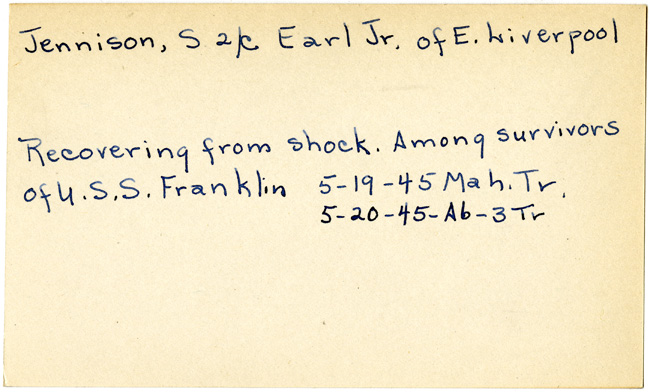 Jennison, S 2/c Earl Jr. of E. Liverpool
Recovering from shock. Among survivors
of U.S.S. Franklin 5-19-45 Mah. Tr.
5-20-45-Ab-3 Tr